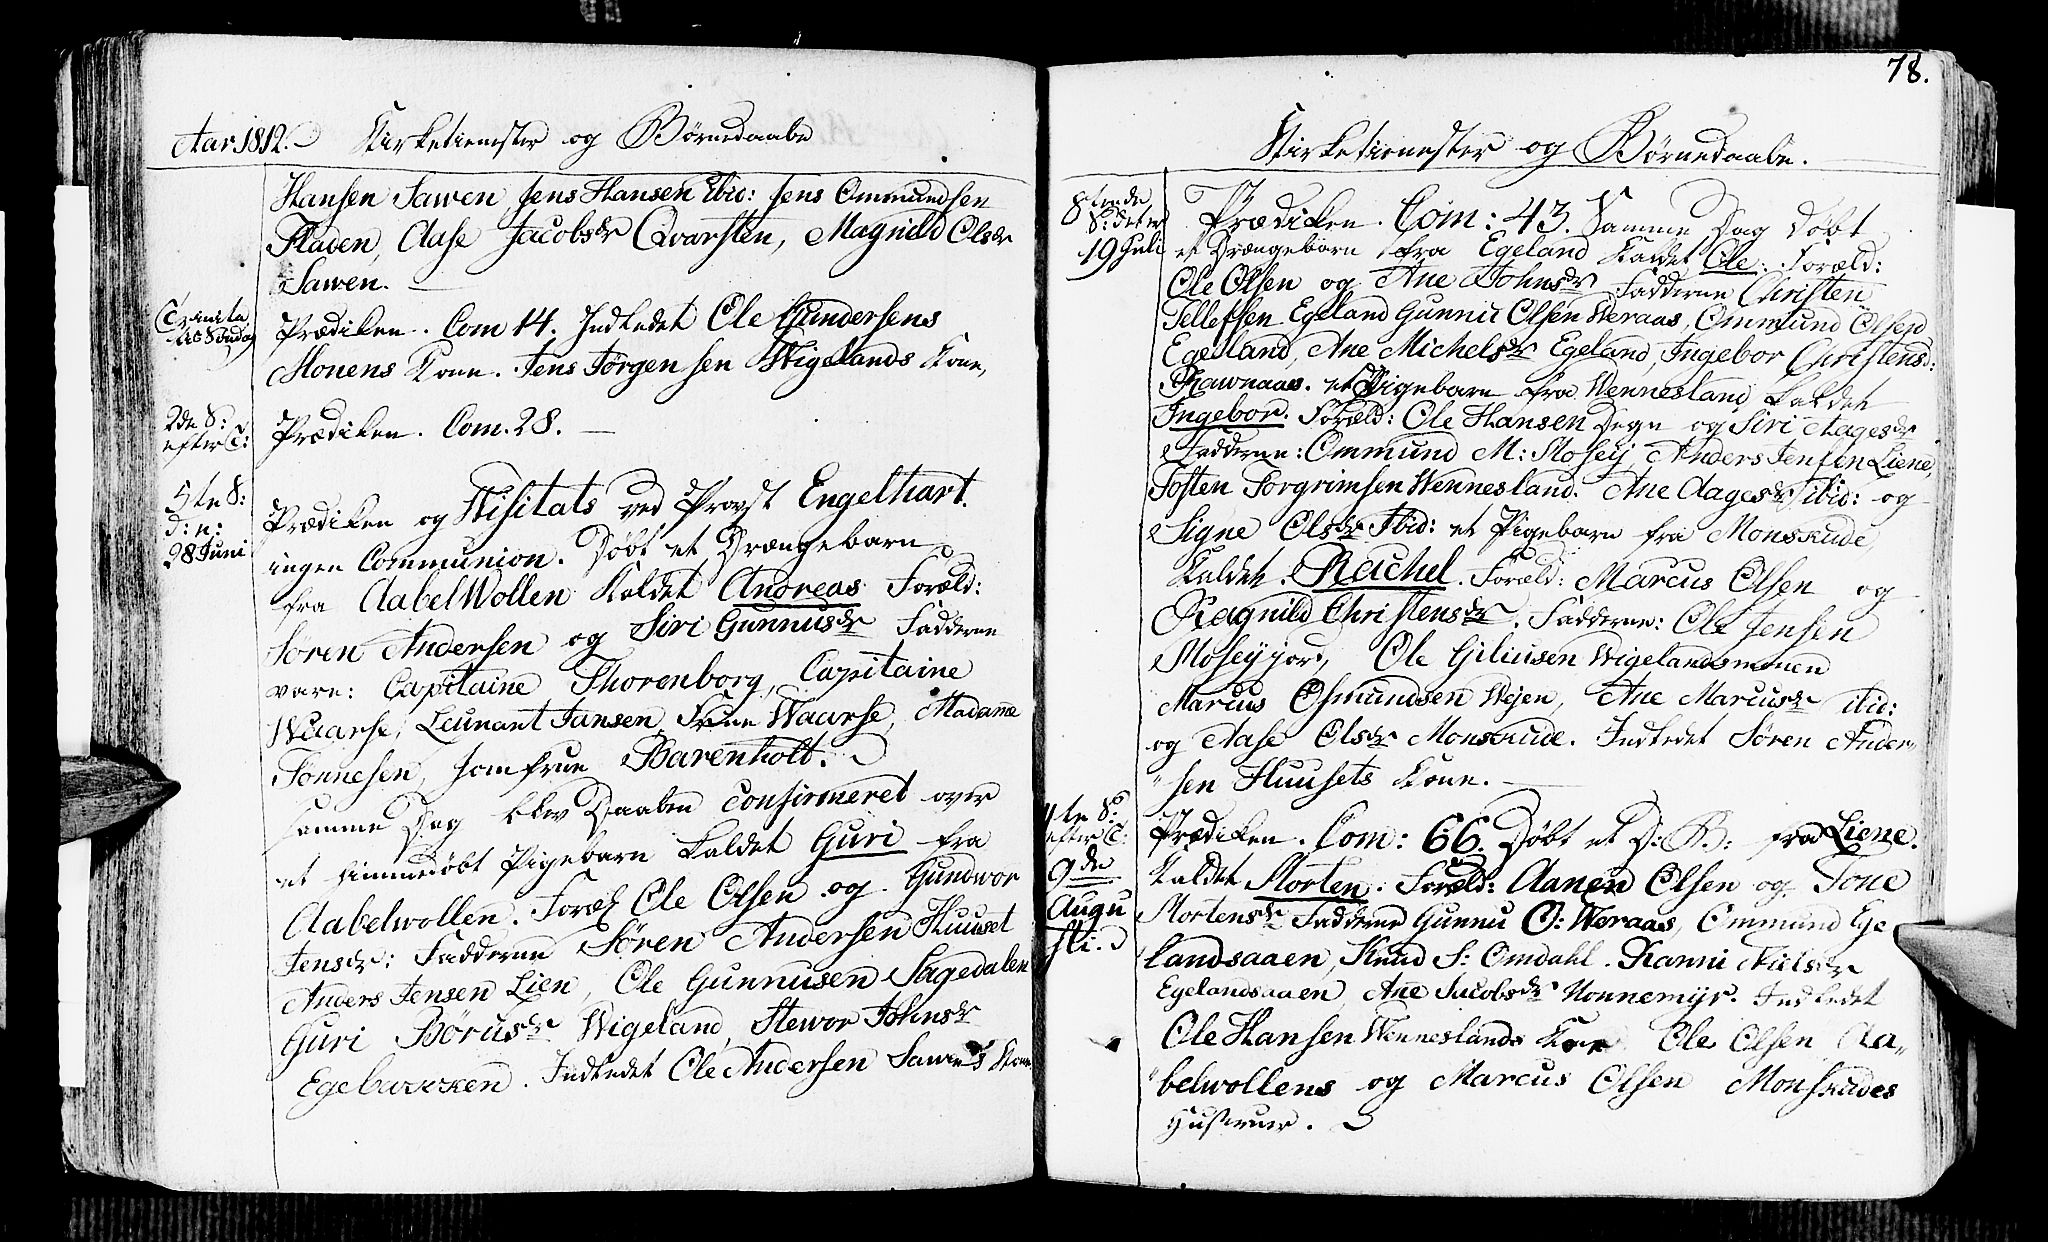 Aar 1812. Kirketienester og Børnedaabe
Hansen Sawen, Jens Hansen Ibid: Jens Ommundsen
Fladen, Aase Jacobsdr Qvarsten, Magnild Olsdr
Sawen.
Trinita
tis Søndag
Prædiken. Com 14. Indledet Ole Gundersens
Monens Kone. Jens Jørgensen Wigelands Kone,
2de S:
efter T:
Prædiken. Com. 28.
5te S:
d: n:
28 Juni
Prædiken og Visitats ved Provst Engelhart.
ingen Communion. Døbt et Drængebarn
fra Aabel Wollen Kaldet Andreas Foræld:
Søren Andersen og Siri Gunnusdr Fadderne
vare: Capitaine Thorenborg, Capitaine
Waarse, Leunant Jansen, Frue Waarse, Madame
Tønnesen, Jomfrue Barenholt.
samme Dag blev Daaben confirmeret over
et hiemmedøbt Pigebarn kaldet Guri fra
Aabelwollen. Foræl Ole Olsen og Gundwor
Jensdr: Fadderne Søren Andersen Huuset
Anders Jensen Lien, Ole Gunnusen Sagedalen
Guri Børusdr Wigeland, Stewor Johnsdr
Egebukken. Indledet Ole Andersen Sawens Kone
78.
Kirketienester og Børnedaabe.
8tende
S: deter
19 Juli
Prædiken. Com: 43. Samme Dag døbt
et Drængebarn fra Egeland Kaldet Ole. Foræld:
Ole Olsen og Ane Johnsdr Fadderne Christen
Tellefsen Egeland Gunnu Olsen Weraas, Ommund Olsen
Egeland, Ane Michelsdr Egeland, Ingebor Christensd:
Rawnaas. et Pigebarn fra Wennesland kaldet
Ingebor. Foræld: Ole Hansen Degn og Siri Aagesdr
Fadderne: Ommund M: Mosey, Anders Jensen Liene,
Tosten Torgrimsen Wennesland. Ane Aagesdr ibid: og
Signe Olsdr Ibid: et Pigebarn fra Monskude,
Kaldet. Rachel. Foræld: Marcus Olsen og
Ragnild Christensdr. Fadderne: Ole Jensen
Moseyjord, Ole Giliusen Wigelandsmonen
Marcus Osmundsen Wejen, Ane Marcusdr ibid:
og Aase Olsdr Monskude. Indledet Søren Ander-
sen Huusets Kone.
11te S:
efter T:
9de
Augu
sti.
Prædiken. Com: 66. Døbt et D: B: fra Liene.
Kaldet Morten. Foræld: Aanen Olsen og Tone
Mortensdr Fadderne Gunnu O: Weraas, Ommund Ege
landsaaen, Knud S: Omdahl. Ranni Nielsdr
Egelandsaaen, Ane Jacobsdr Nonnemyr. Indledet
Ole Hansen Wenneslands Kone Ole Olsen Aa-
belwollens og Marcus Olsen Monskudes
Hustruer.